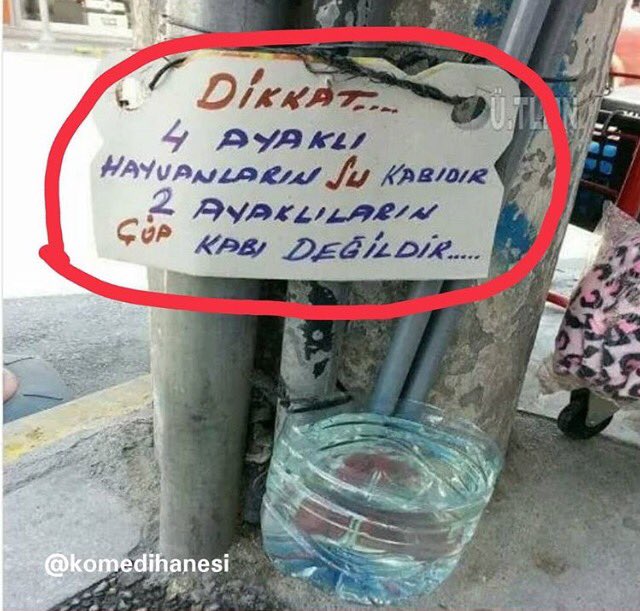 DİKKAT....
4 AYAKLI
HAYVANLARIN SU KABIDIR
2 AYAKLILARIN
ÇÖP KABI DEĞİLDİR.....
@komedihanesi